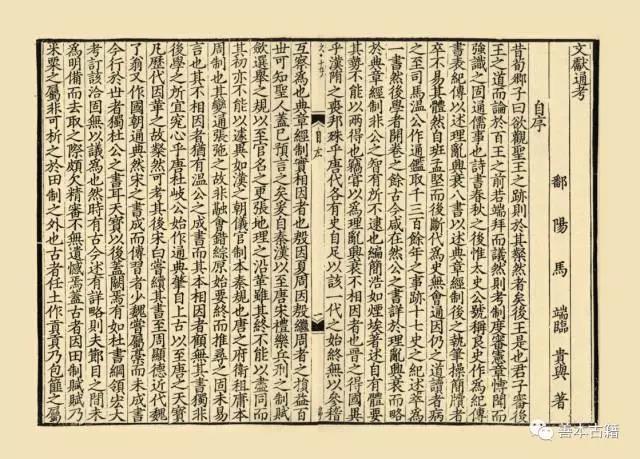 文獻通考
自序
鄱陽馬端臨貴與著
昔荀卿子曰欲觀聖王之跡則於其粲然者矣後王是也君子審後
王之道而論於百王之前若端拜而議然則考制度審憲章博聞而
強識之固通儒事也詩書春秋之後惟太史公號稱良史作為紀傳
書表紀傳以述理亂興衰八書以述典章經制後之執筆操簡牘者
卒不易其體然自班孟堅而後斷代為史無會通因仍之道讀者病
之至司馬溫公作通鑑取千三百餘年之事跡十七史之紀述萃為
一書然後學者開卷之餘古今咸在然公之書詳於理亂興衰而略
於典章經制非公之智有所不逮也編簡浩如煙埃著述自有體要
其勢不能以兩得也竊嘗以為理亂興衰不相因者也晉之得國異
乎漢隋之喪邦殊乎唐代各有史自足以該一代之始終無以參稽
自序
互察為也典章經制實相因者也殷因夏周因殷繼周者之損益百
世可知聖人蓋已預言之矣爰自秦漢以至唐宋禮樂兵刑之制賦
斂選舉之規以至官名之更張地理之沿革雖其終不能以盡同而
其初亦不能以遽異如漢之朝儀官制本秦規也唐之府衛租庸本
周制也其變通張弛之故非融會錯綜原始要終而推尋之固未易
言也其不相因者猶有溫公之成書而其本相因者顧無其書獨非
後學之所宜究心乎唐杜岐公始作通典肇自上古以至唐之天寶
凡歷代因革之故粲然可考其後宋白嘗續其書至周顯德近代魏
了翁又作國朝通典然宋之書成而傳習者少魏嘗屬藁而未成書
今行於世者獨杜公之書耳天寶以後蓋闕焉有如杜書綱領宏大
考訂該洽固無以議為也然時有古今述有詳略則夫節目之間未
為明備而去取之際頗欠精審不無遺憾焉蓋古者因田制賦賦乃
米粟之屬非可析之於田制之外也古者任土作貢貢乃包篚之屬
善本古籍